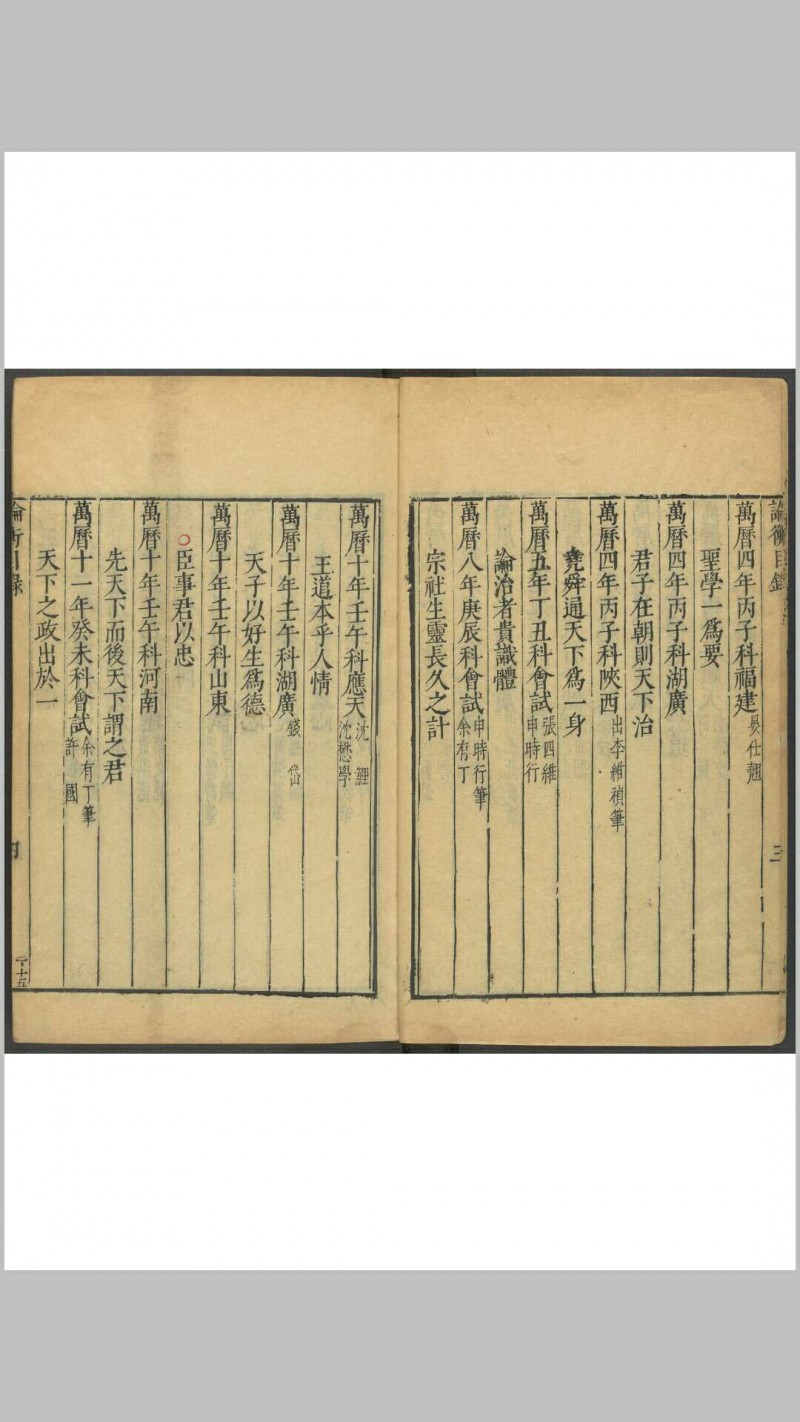 論衡目錄
三
萬曆四年丙子科福建 吳仕翹
聖學一爲要
萬曆四年丙子科湖廣
君子在朝則天下治
萬曆四年丙子科陝西 出李維禎筆
堯舜通天下爲一身
萬曆五年丁丑科會試 張四維 申時行
論治者貴識體
萬曆八年庚辰科會試 申時行筆 余有丁
宗社生靈長久之計
萬曆十年壬午科應天 沈鯉 沈懋學
王道本乎人情
萬曆十年壬午科湖廣 錢岱
天子以好生爲德
萬曆十年壬午科山東
臣事君以忠
萬曆十年壬午科河南
先天下而後天下謂之君
萬曆十一年癸未科會試 余有丁筆 許國
天下之政出於一
論衡目錄
四